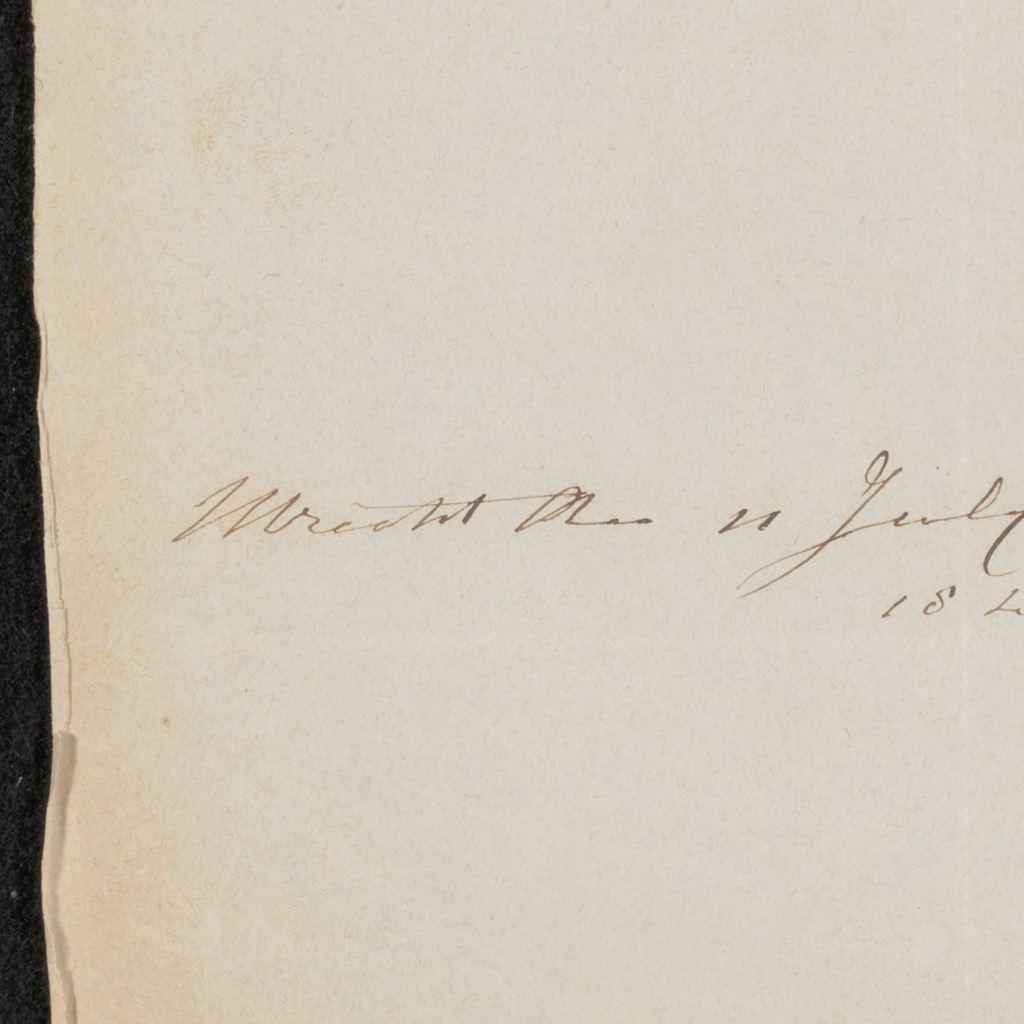 Utrecht den 11 July
184